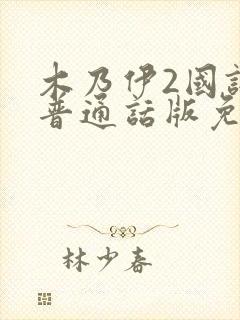 木乃伊2國語
普通話版免
林少春